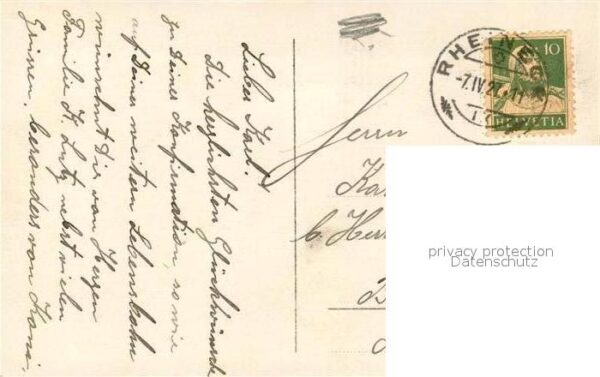 Lieber Karl.
Die herzlichsten Glückwünsche
zu Deiner Konfirmation, sowie
auf Deinen weitern Lebensbahn
wünschet Dir von Herzen
Familie K. Lutz nebst vielen
Grüssen, besonders von Hans.
Herrn
Ka
b. Herr
RHEINECK
10
HELVETIA
privacy protection
Datenschutz